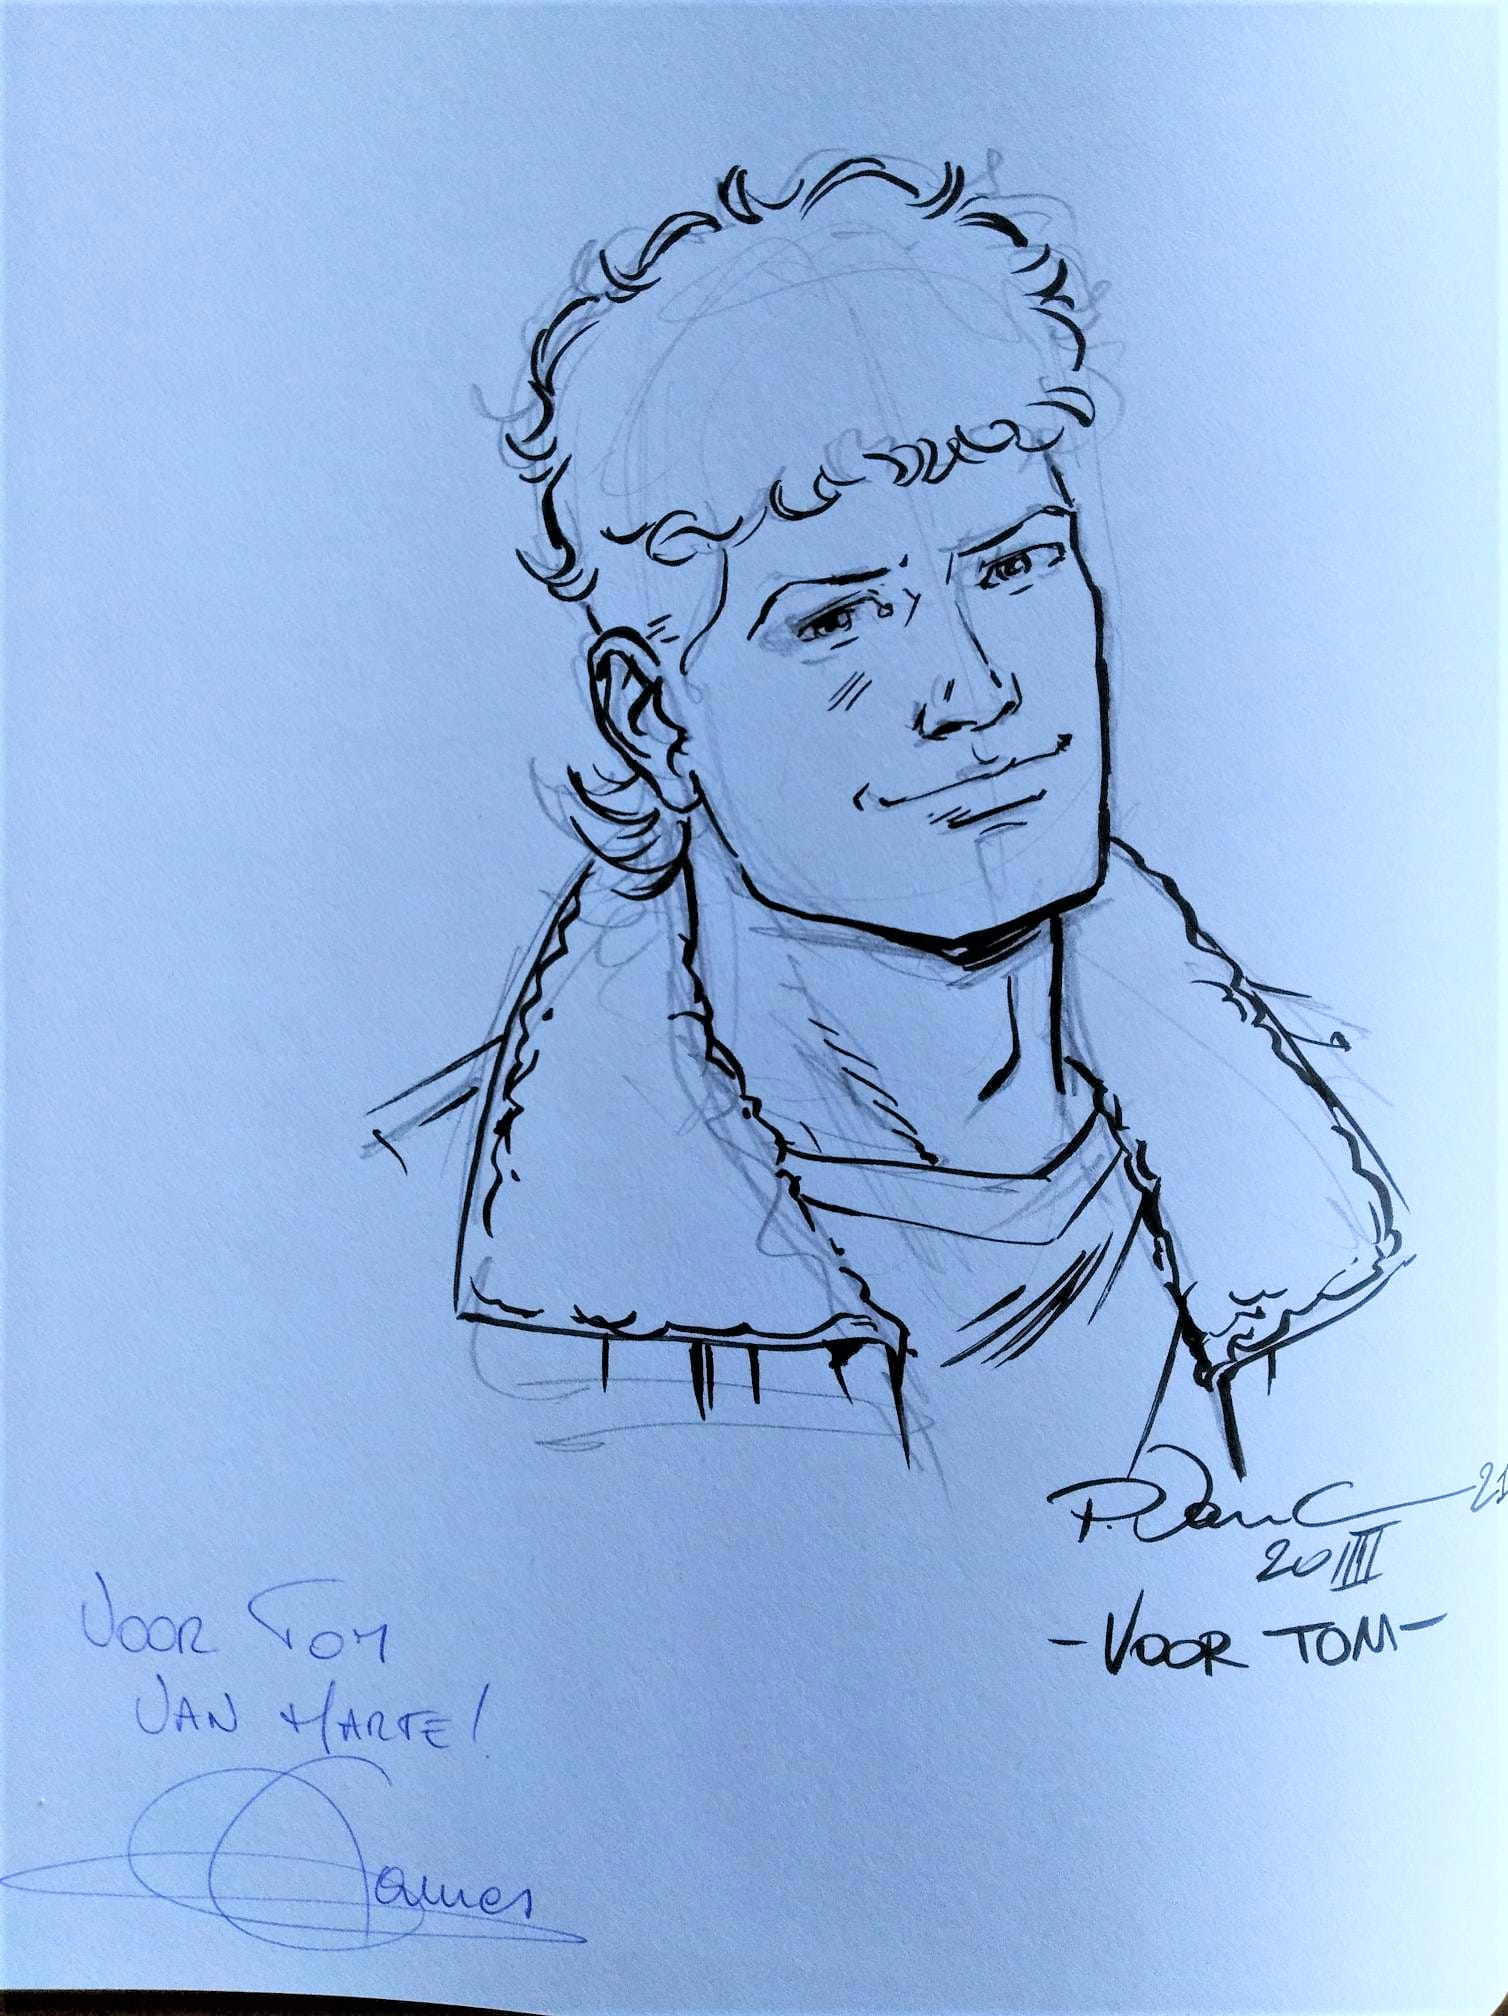 P. VanC 21
20 III
-VOOR TOM-
VOOR TOM
VAN HARTE!
James